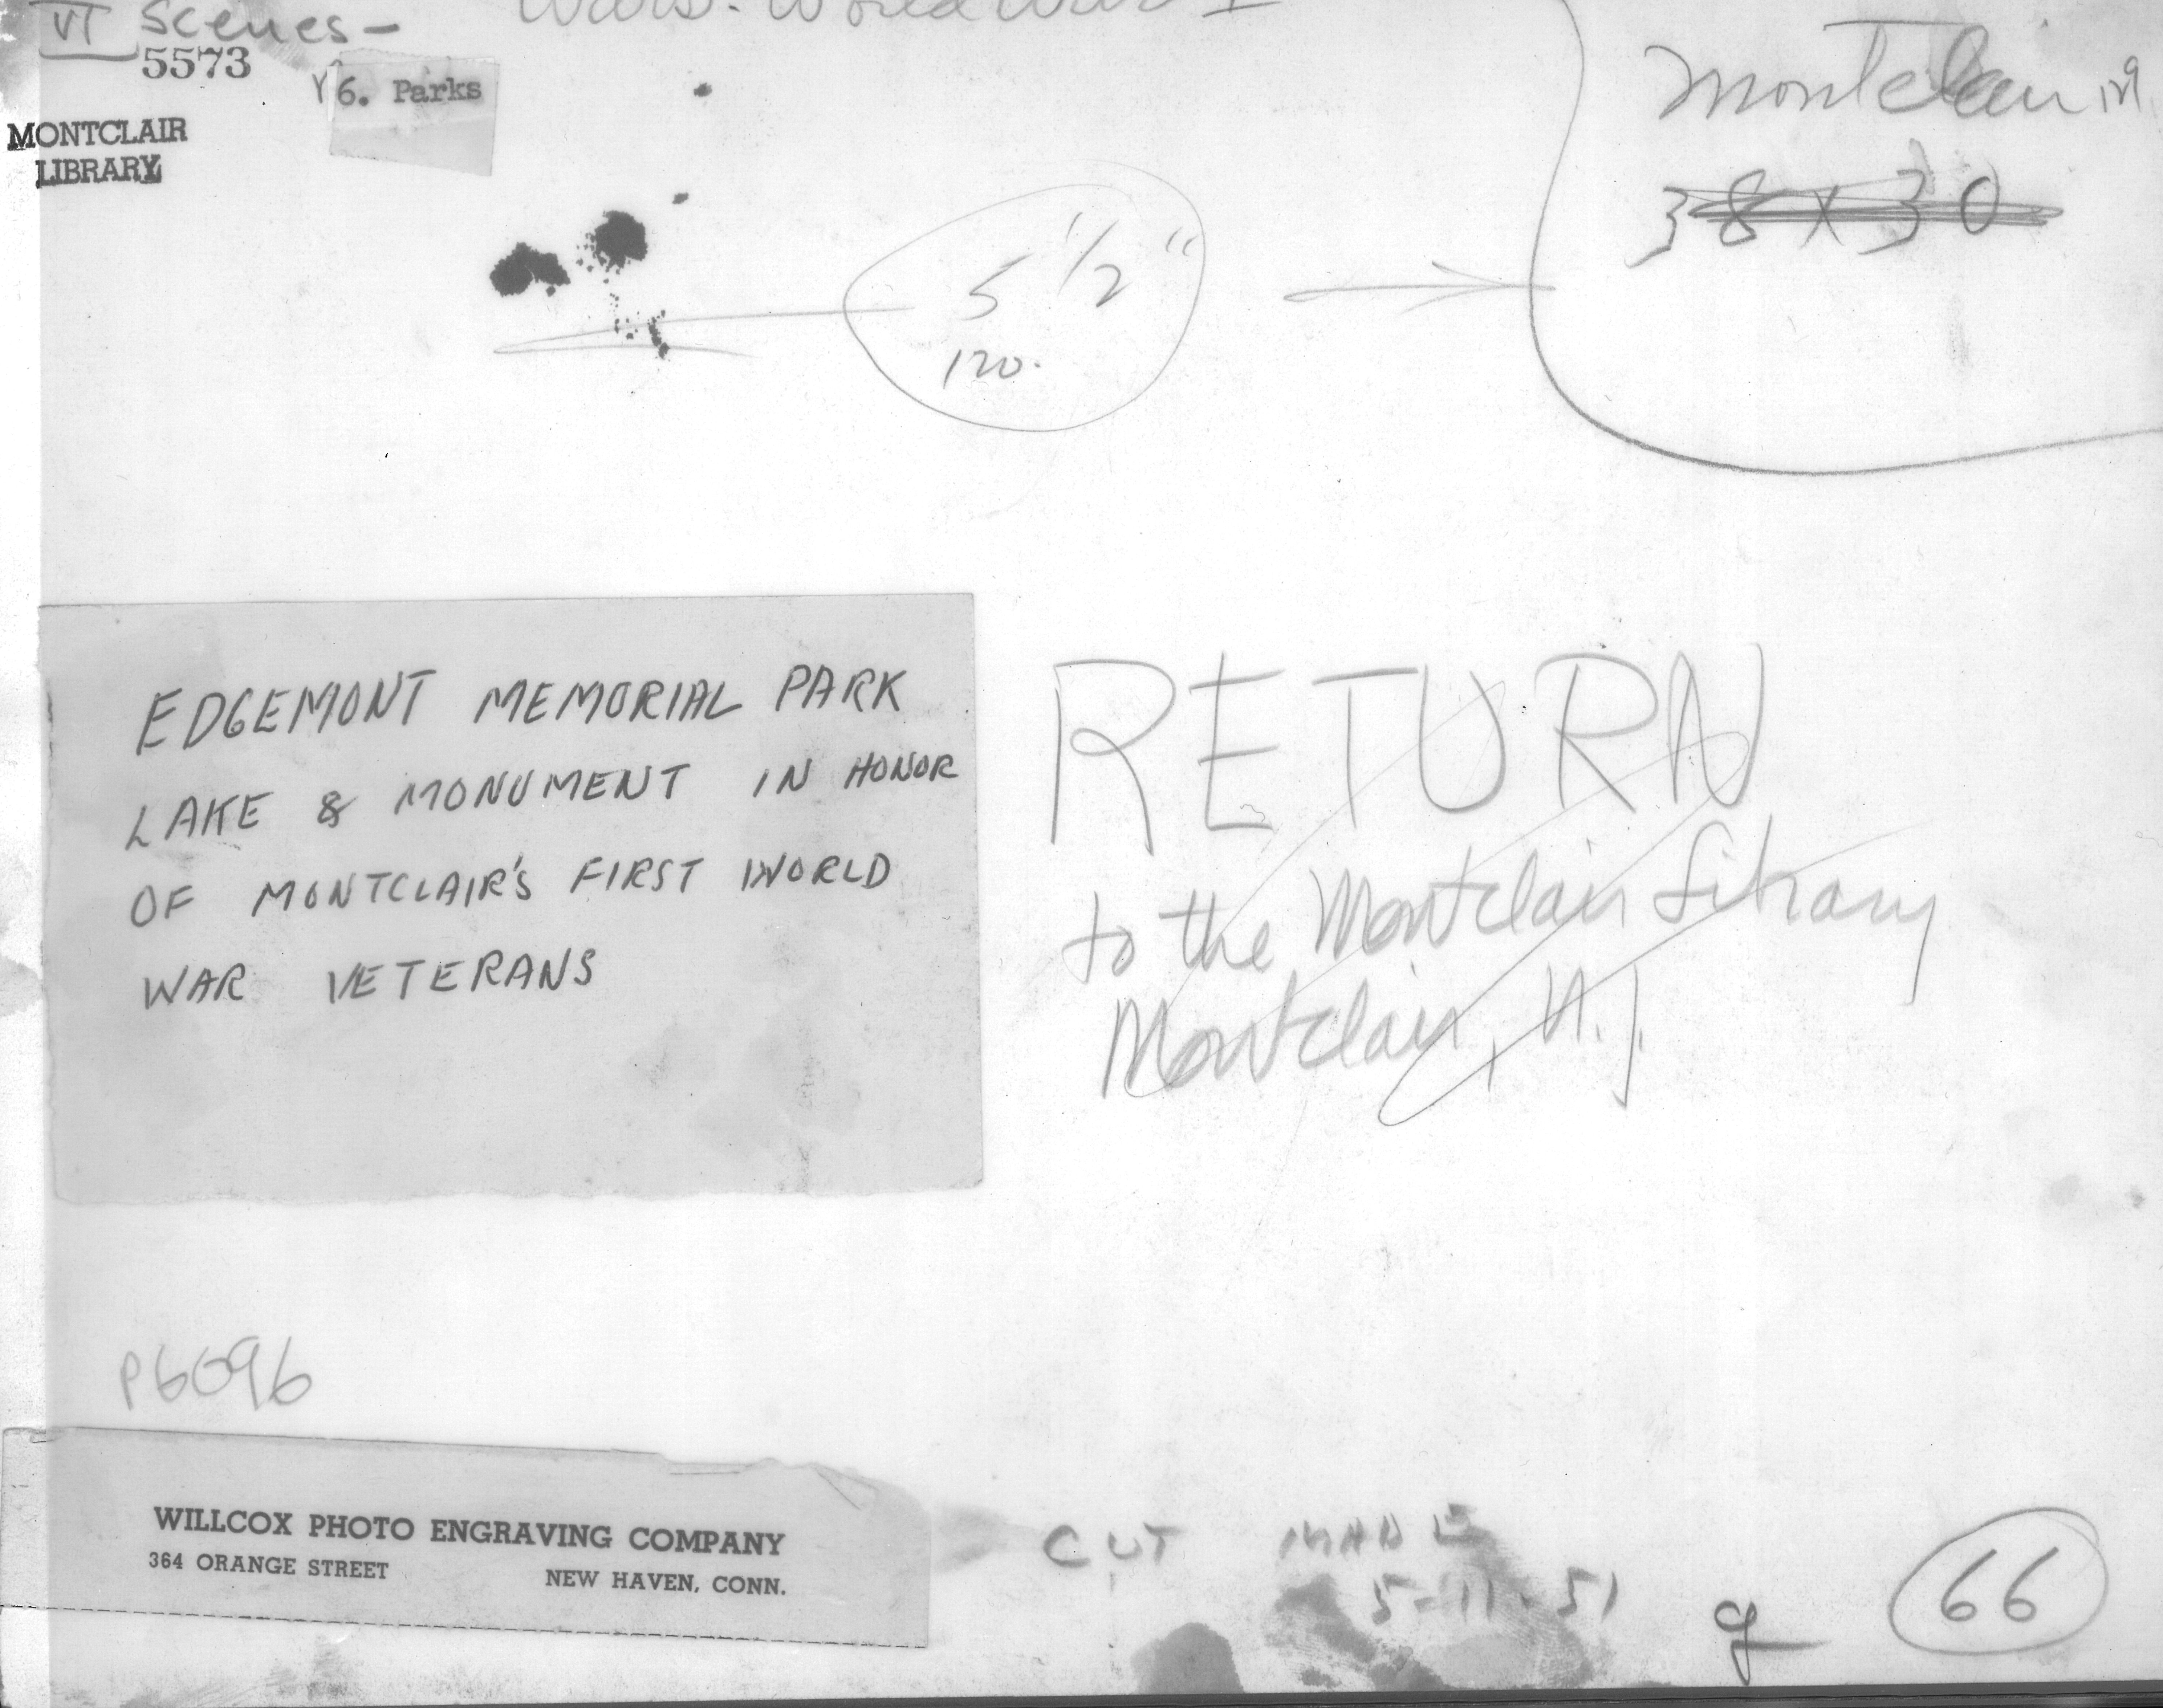 VI Scenes-
Wars. World War I
5573
6. Parks
MONTCLAIR
LIBRARY
Montclair
38 x 30
5 1/2"
120.
EDGEMONT MEMORIAL PARK
LAKE & MONUMENT IN HONOR
OF MONTCLAIR'S FIRST WORLD
WAR VETERANS
RETURN
to the Montclair Library
Montclair, N.J.
P6096
WILLCOX PHOTO ENGRAVING COMPANY
364 ORANGE STREET NEW HAVEN, CONN.
CUT MADE
5-11-51
g
66